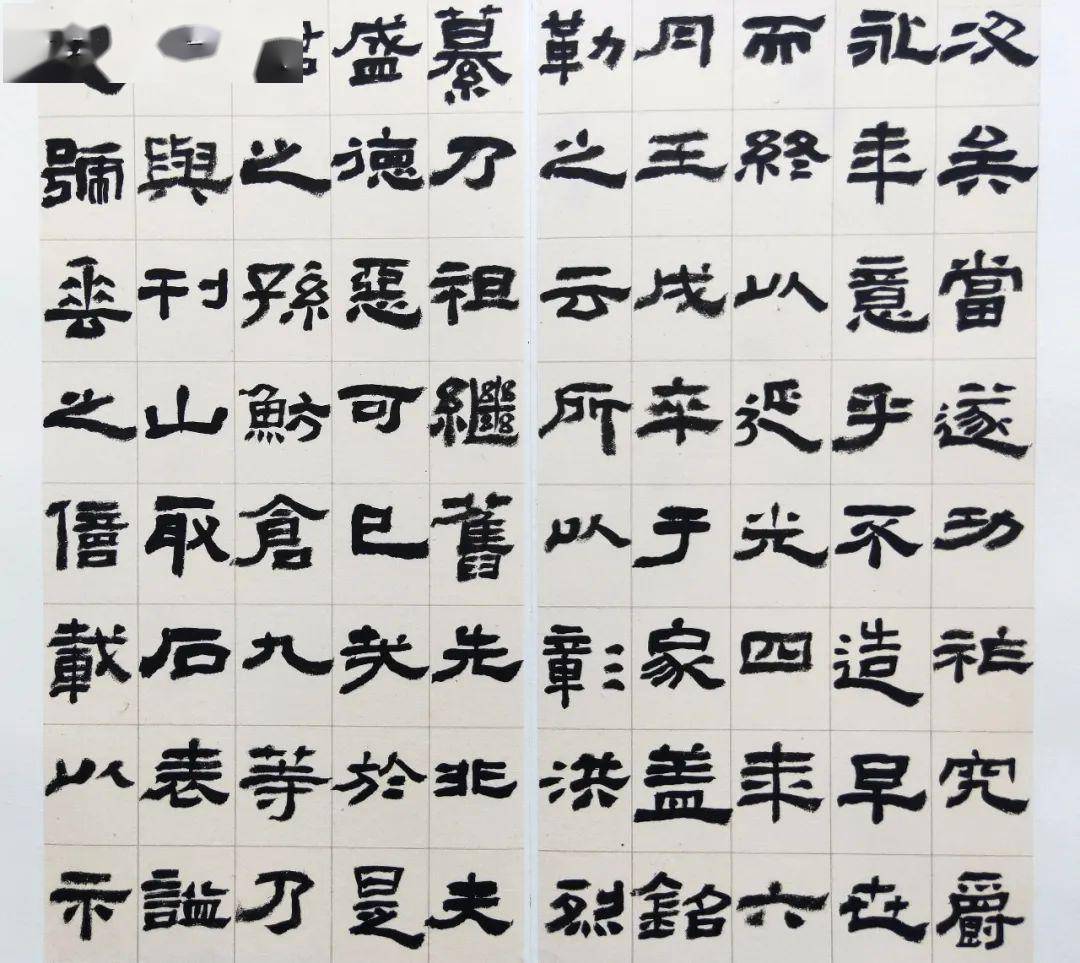 矣當遂功祚究爵
永年意乎不造早世
而終以延光四年六
月壬戌卒于家盖銘
勒之云所以彰洪烈
纂乃祖繼舊先非夫
盛德惡可已哉於是
之孫魴倉九等乃
與刊山取石表謚
號垂之億載以示